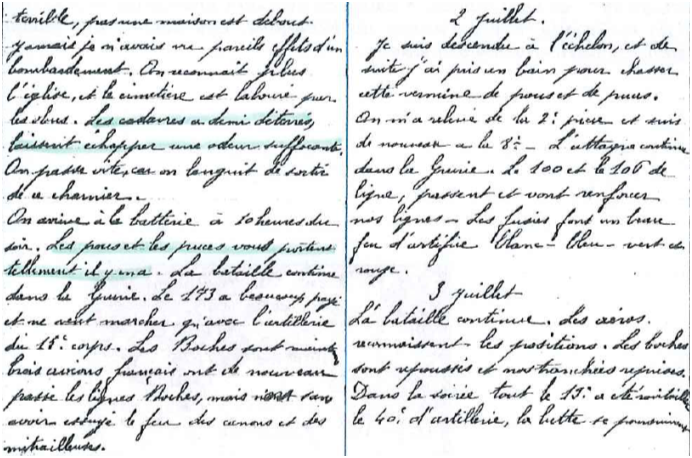 terrible, pas une maison est debout
jamais je n'avais vu pareils effets d'un
bombardement. On reconnait plus
l'église, et le cimetière est labouré par
les obus. Les cadavres a demi déterrés,
laissent échapper une odeur suffocante.
On passe vite, car on languit de sortir
de ce charnier.
On arrive à la batterie à 10 heures du
soir. Les poux et les puces vous portent
tellement il y en a. La bataille continue
dans la Grurie. Le 173 a beaucoup payé
et ne veut marcher qu'avec l'artillerie
du 15e corps. Les Boches sont
trois avions français ont de nouveau
passé les lignes Boches, mais non sans
avoir essuyé le feu des canons et des
mitrailleuses.
2 Juillet.
Je suis descendu à l'échelon, et de
suite j'ai pris un bain pour chasser
cette vermine de poux et de puces.
On m'a relevé de la 2e pièce et suis
de nouveau a la 8e - L'attaque continue
dans la Grurie. Le 100 et le 106 de
ligne, passent et vont renforcer
nos lignes - Les fusées font un beau
feu d'artifice blanc - bleu - vert et
rouge.
3 Juillet
La bataille continue. Les aéros.
reconnaissent les positions. Les boches
sont repoussés et nos tranchées reprises.
Dans la soirée tout le 15e a été
le 40e d'artillerie, la lutte se poursuivant